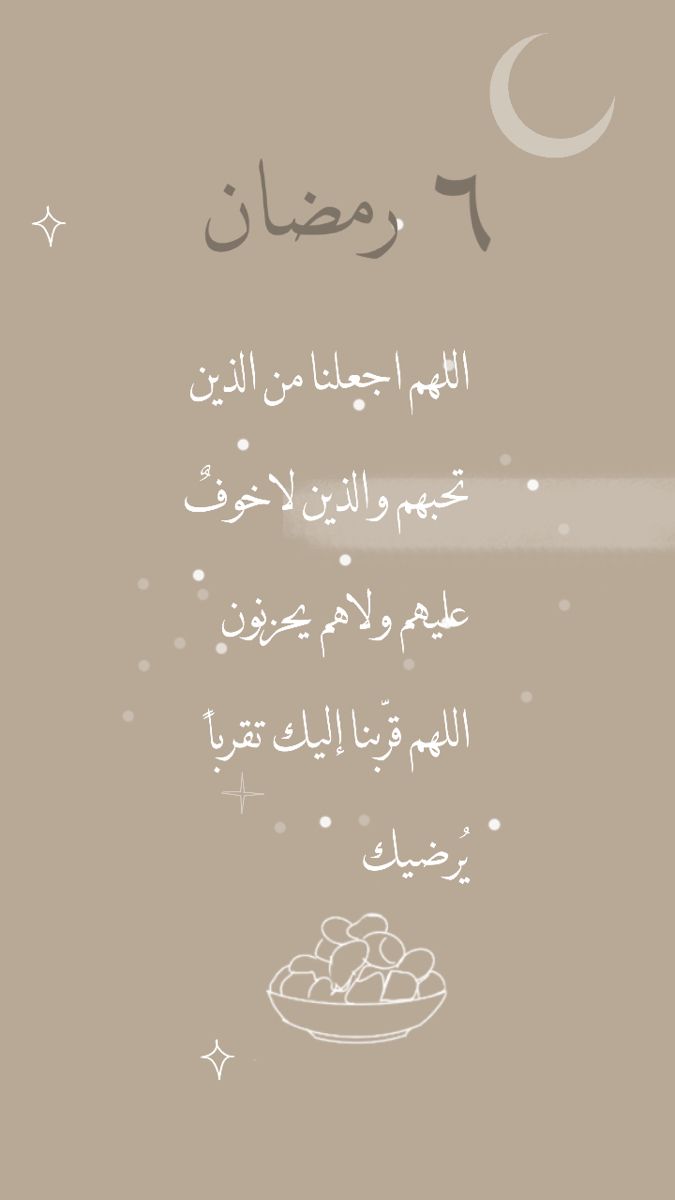 ٦ رمضان
اللهم اجعلنا من الذين
تحبهم والذين لاخوفٌ
عليهم ولاهم يحزنون
اللهم قرّبنا إليك تقرباً
يُرضيك